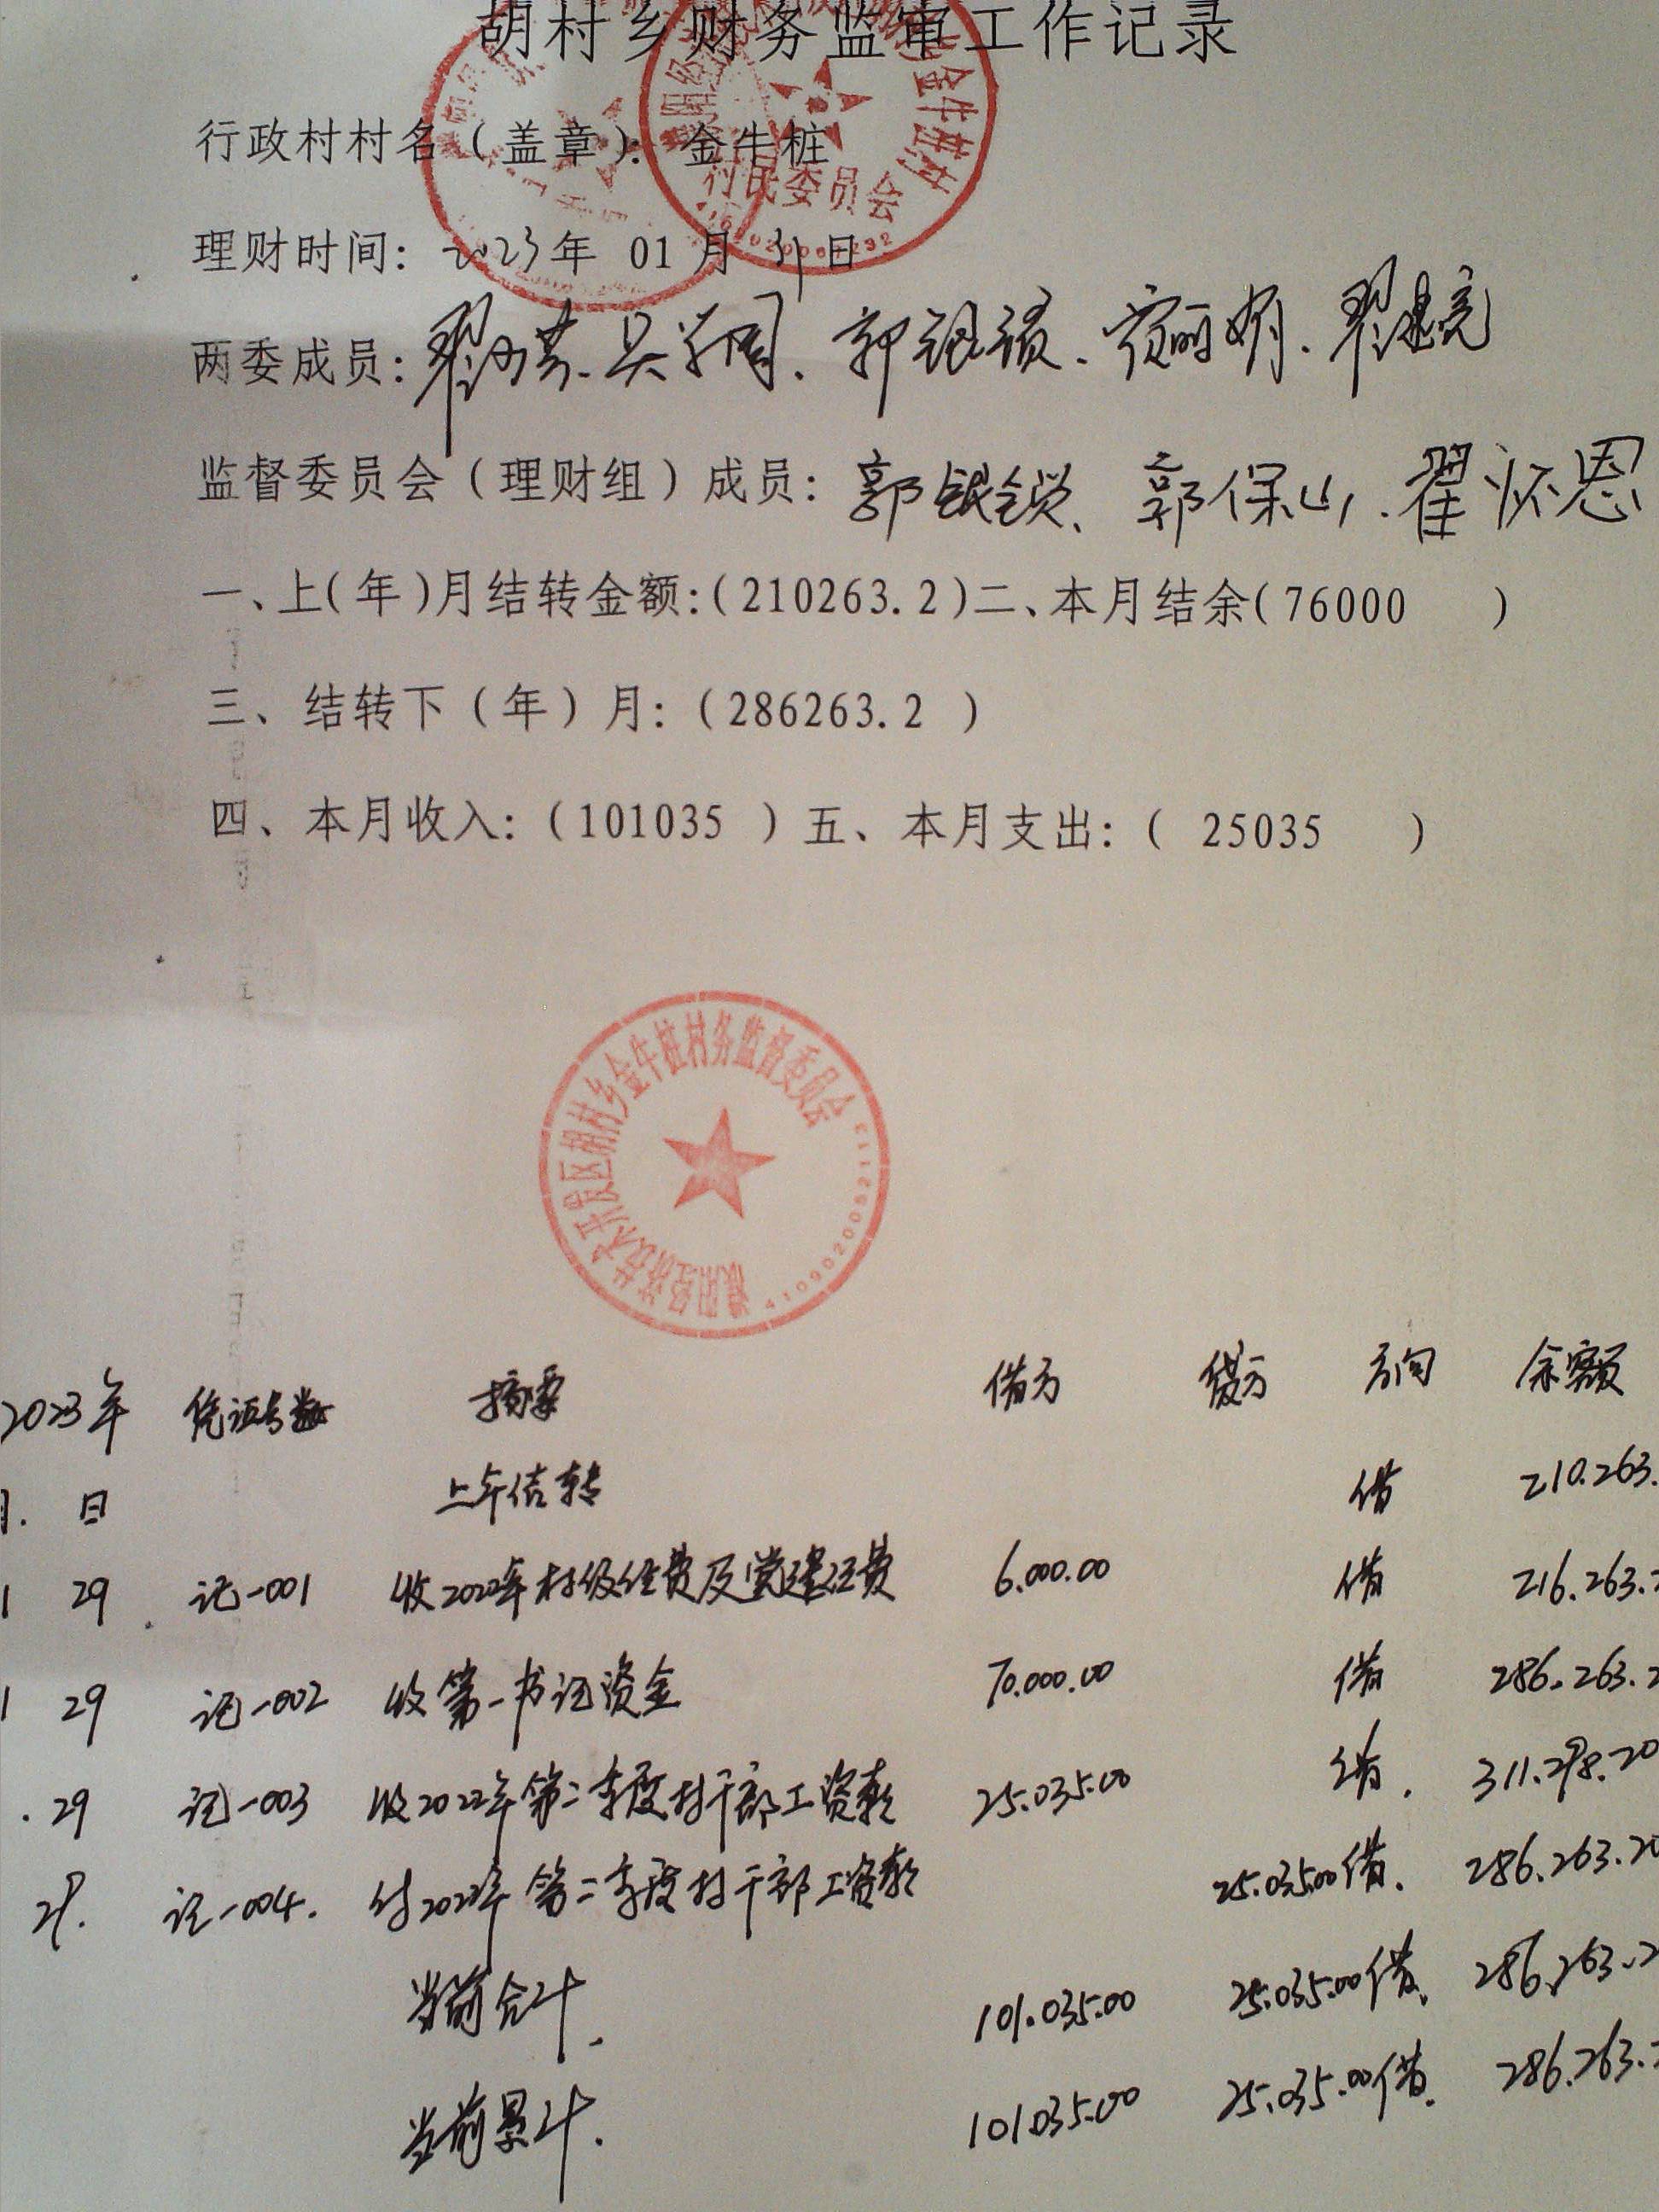 胡村乡财务监审工作记录
行政村村名（盖章）：金牛桩
村民委员会
理财时间：2023年 01月31日
两委成员：
监督委员会（理财组）成员：郭银锁、郭保山、翟怀恩
一、上(年)月结转金额：(210263.2)二、本月结余(76000 )
三、结转下（年）月：（286263.2 ）
四、本月收入：（101035 ）五、本月支出：（ 25035 ）
濮阳经济技术开发区胡村乡金牛桩村务监督委员会
4109020052113
2023年 凭证号数 摘要 借方 贷方 方向 余额
月. 日 上年结转 借 210.263.
1 29 记-001 收2022年村级经费及党建经费 6.000.00 借 216.263.2
1 29 记-002 收第一书记资金 70.000.00 借 286.263.2
29 记-003 收2022年第二季度村干部工资款 25.035.00 借. 311.298.20
29. 记-004. 付2022年第二季度村干部工资款 25.035.00 借. 286.263.20
当前合计. 101.035.00 25.035.00 借. 286.263.2
当前累计. 101.035.00 25.035.00 借. 286.263.2